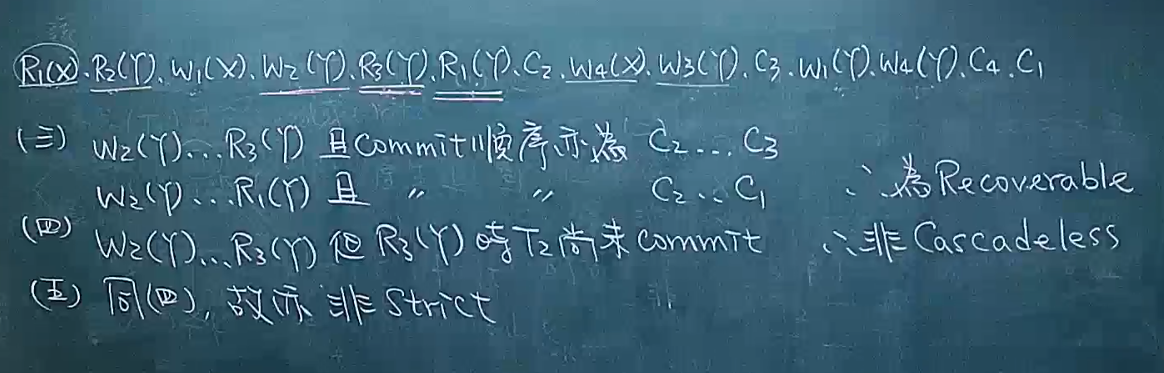 R₁(X).R₂(Y).W₁(X).W₂(Y).R₃(Y).R₁(Y).C₂.W₄(X).W₃(Y).C₃.W₁(Y).W₄(Y).C₄.C₁
(三) W₂(Y)...R₃(Y) 且commit順序亦為 C₂...C₃
W₂(Y)...R₁(Y) 且 〃 〃 C₂...C₁ ∴為Recoverable
(四) W₂(Y)...R₃(Y) 但 R₃(Y) 時T₂尚未commit ∴非Cascadeless
(五) 同(四), 故亦非Strict